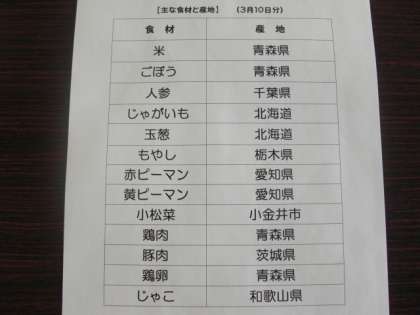 【主な食材と産地】 (3月10日分)
食材 産地
米 青森県
ごぼう 青森県
人参 千葉県
じゃがいも 北海道
玉葱 北海道
もやし 栃木県
赤ピーマン 愛知県
黄ピーマン 愛知県
小松菜 小金井市
鶏肉 青森県
豚肉 茨城県
鶏卵 青森県
じゃこ 和歌山県